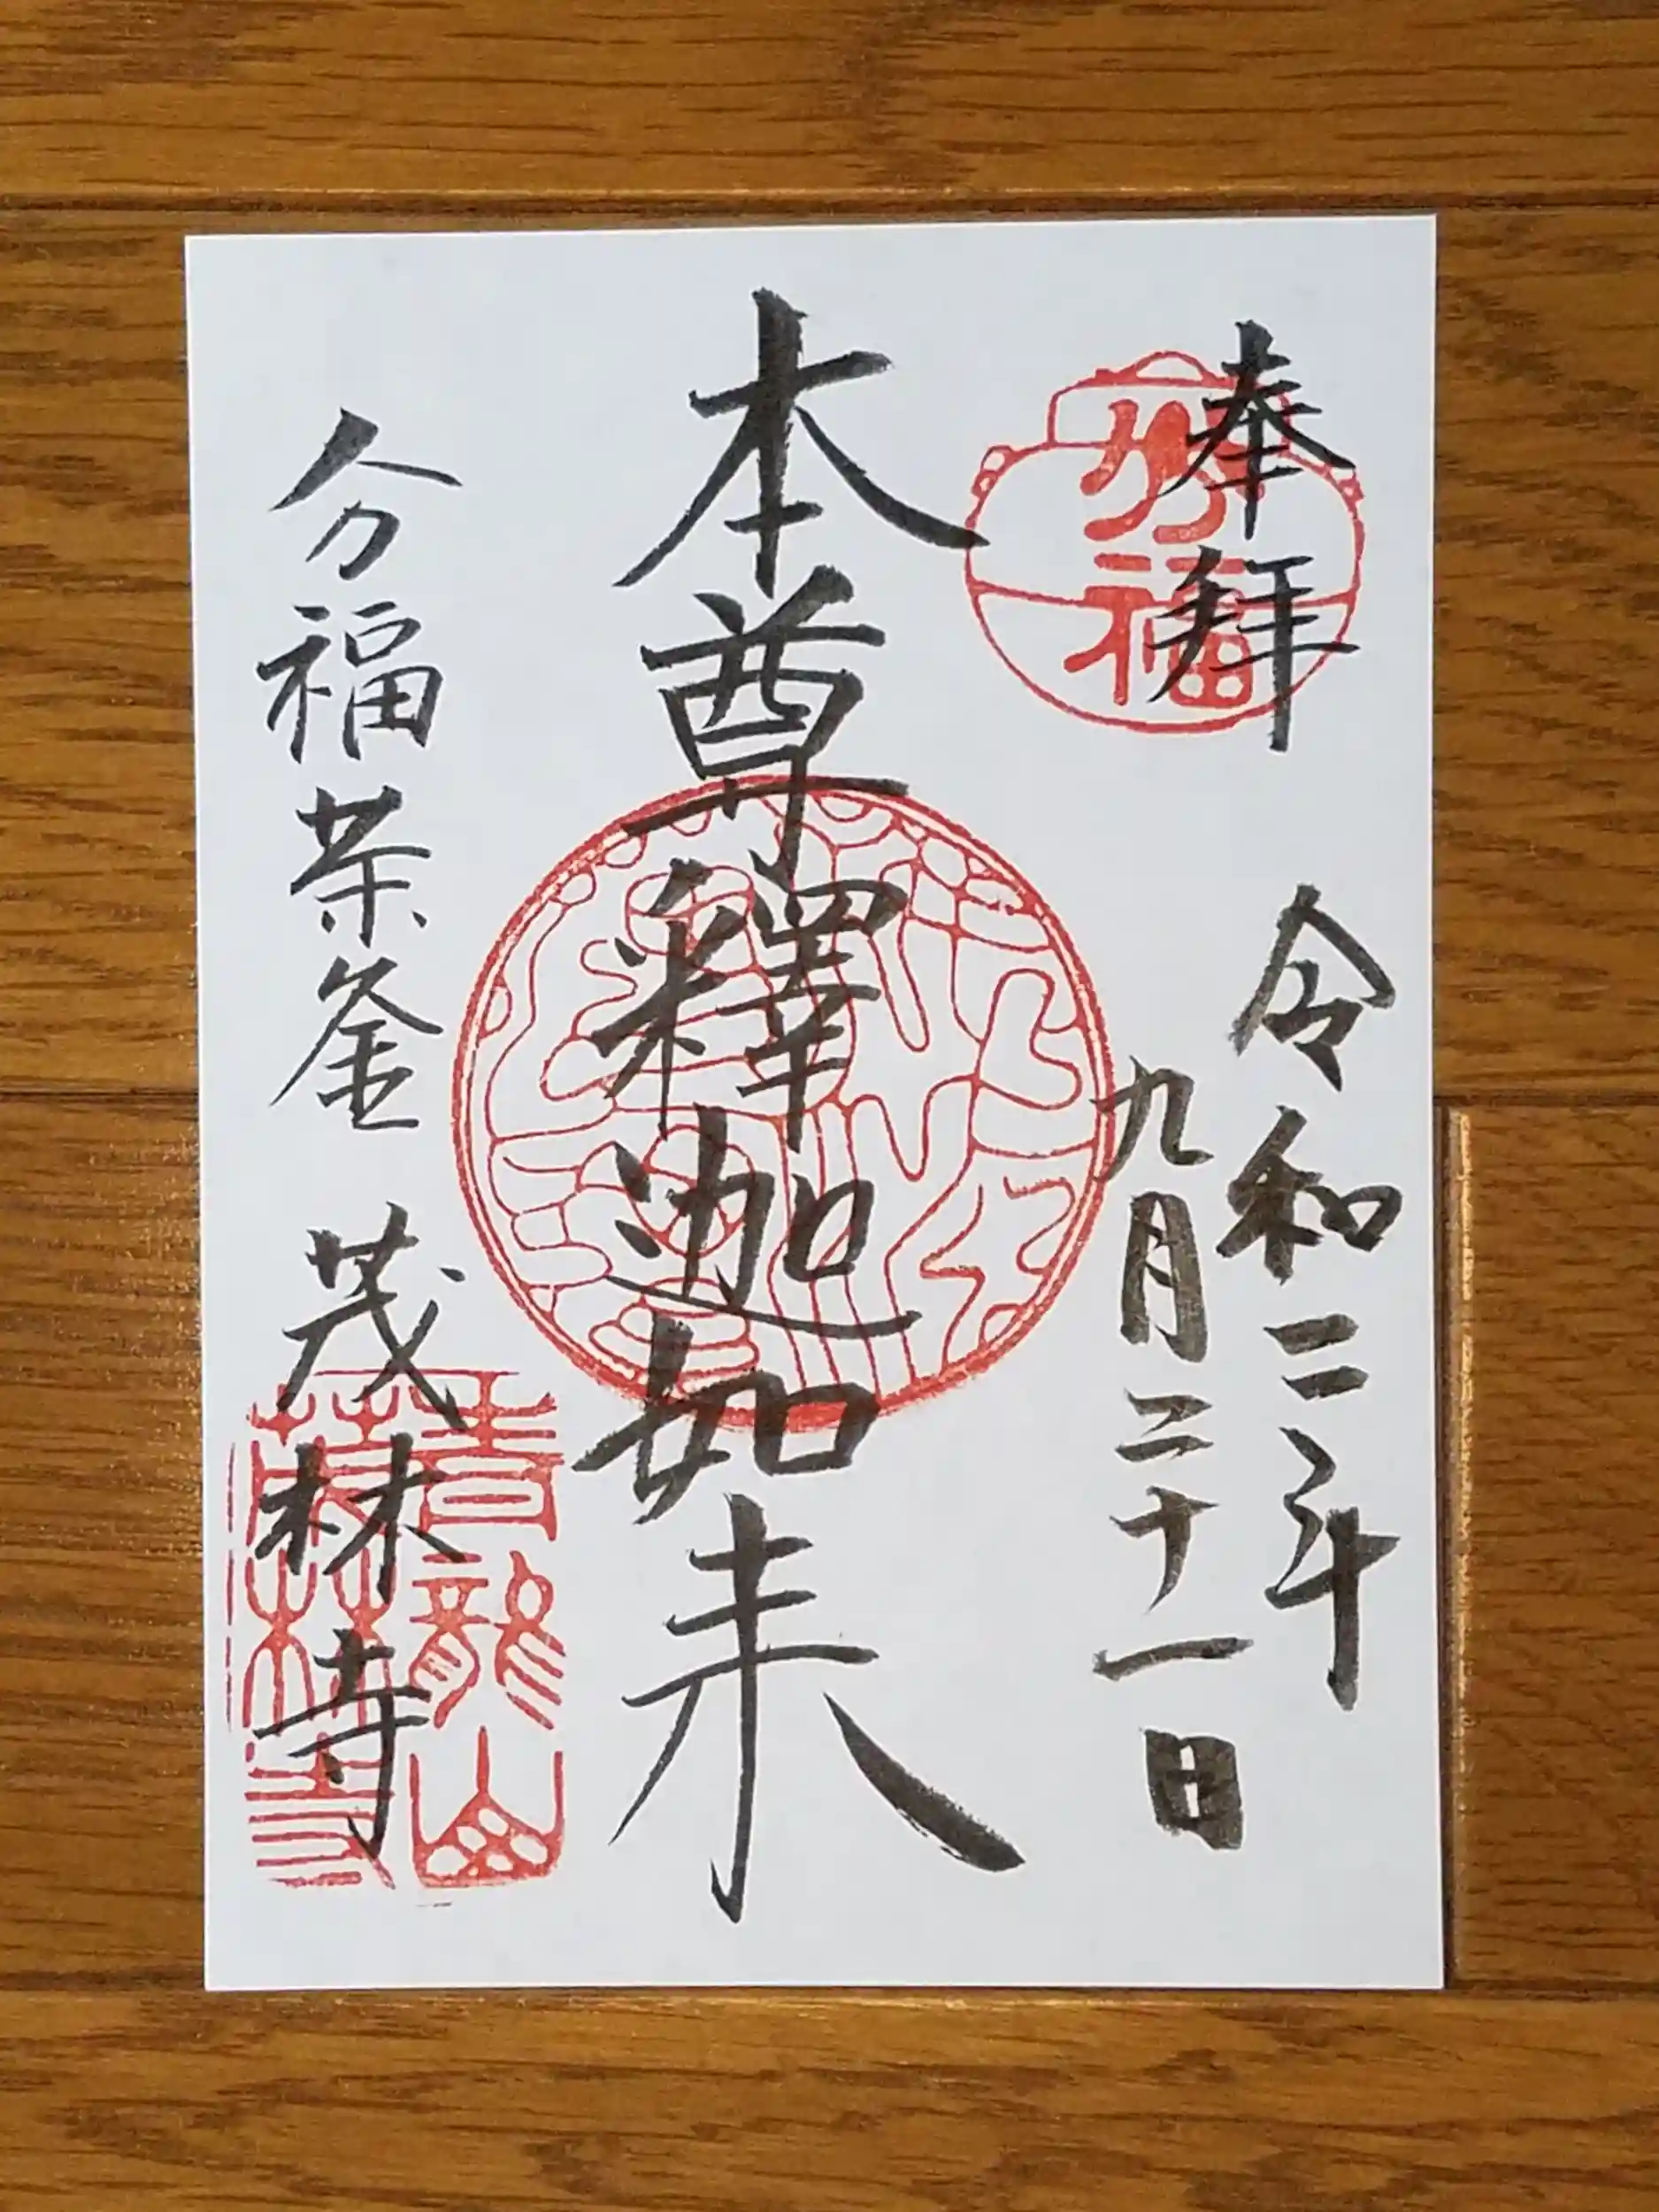 奉拝
令和二年
九月二十一日
本尊釋迦如来
分福茶釜 茂林寺
分福
青龍山
茂林寺